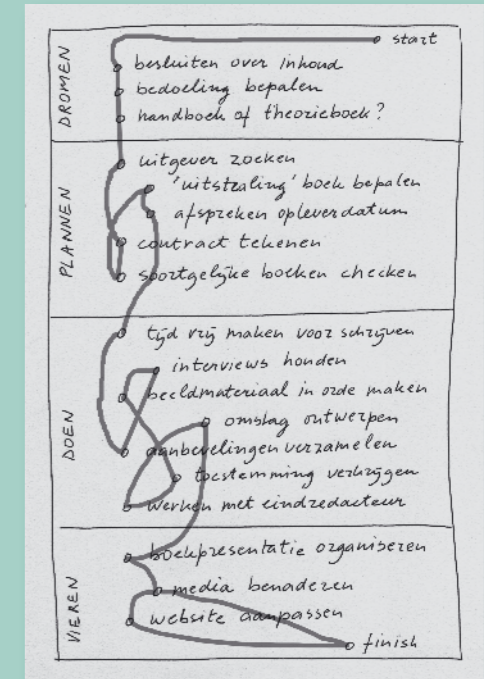 start
DROMEN
besluiten over inhoud
bedoeling bepalen
handboek of theorieboek?
PLANNEN
uitgever zoeken
'uitstraling' boek bepalen
afspreken opleverdatum
contract tekenen
soortgelijke boeken checken
DOEN
tijd vrij maken voor schrijven
interviews houden
beeldmateriaal in orde maken
omslag ontwerpen
aanbevelingen verzamelen
toestemming verkrijgen
werken met eindredacteur
VIEREN
boekpresentatie organiseren
media benaderen
website aanpassen
finish